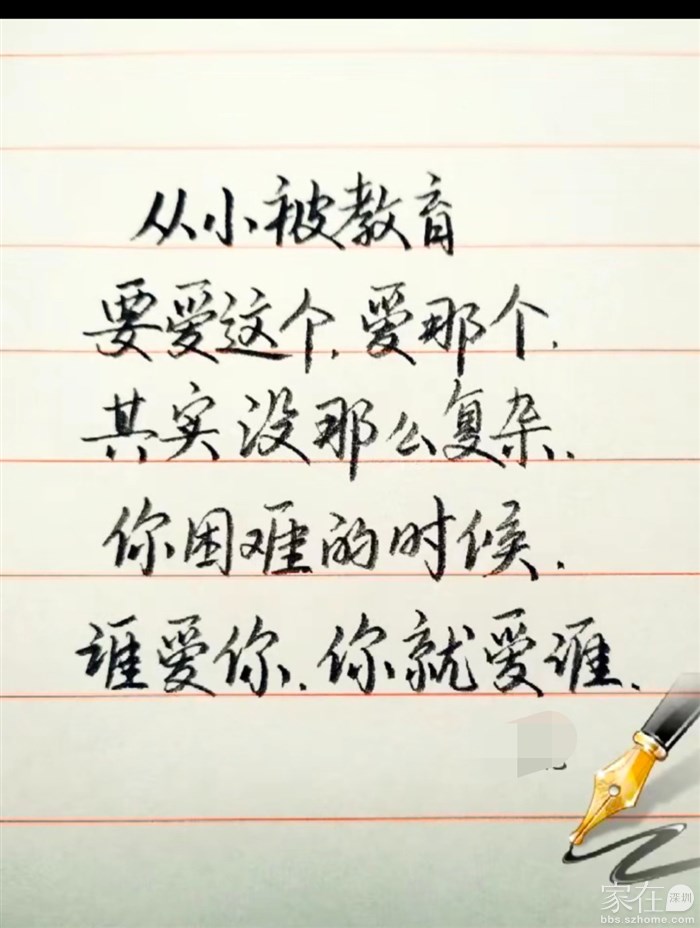 从小被教育
要爱这个,爱那个.
其实没那么复杂.
你困难的时候.
谁爱你.你就爱谁.
家在深圳
bbs.szhome.com